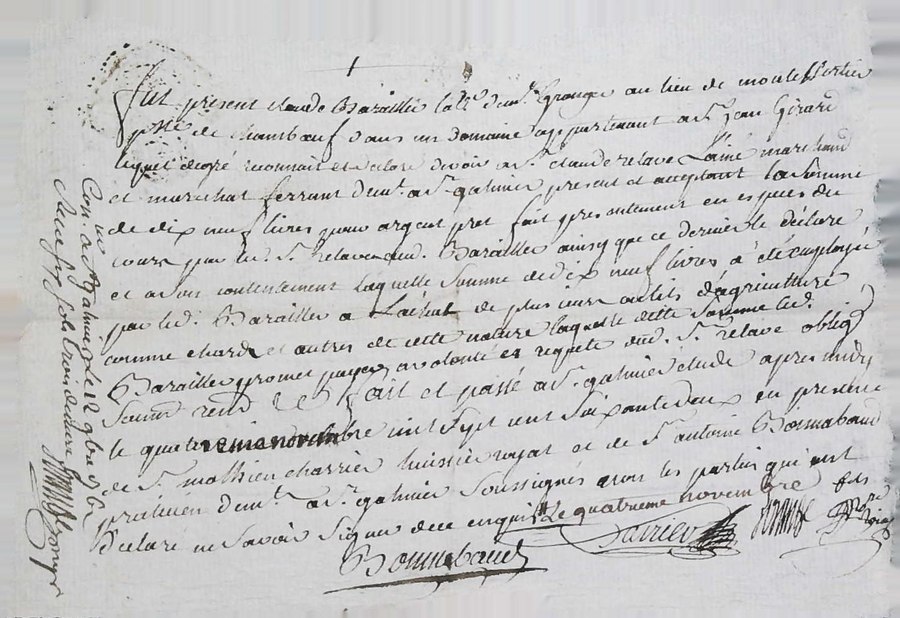 fut present claude Barailler lab.r demt. Grangé au lieu de
p.sse de chambœuf dans un domaine appartenant a S.r Jean Girard
lequel de gré reconnait et declare devoir a S.r claude relave L'ainé marchand
et marechal ferrant demt. a S.t galmier present et acceptant la Somme
de dix neuf livres pour argent pret fait presentement en especes du
cours par led. S.r Relave aud. Barailler ainsy que ce dernier le declare
et a Son contentement laquelle Somme de dix neuf livres à été employée
par led. Barailler a L'achat de plusieurs outils d'agriculture
comme chard et autres de cette nature laquelle dette Somme led.
Barailler promet payer a volonté et requete dud. S.r relave oblig.
Soum. renon. fait et passé a S.t galmier etude apres midy
le quatrieme novembre mil Sept cent Soixante deux en presence
de S.r mathieu charrier huissier royal et de S.r antoine Bonnabaud
praticien demt. a S.t galmier Soussignés avec les parties qui ont
Declaré ne Savoir Signer de ce enquis le quatrieme novembre
Bonnabaud
Con. a S.t galmier Le 12 9bre 1762
Recu